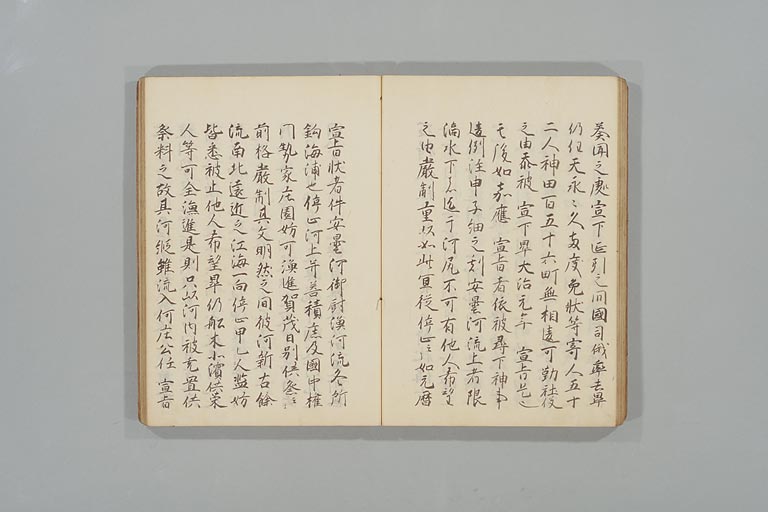 奏聞之處宣下延引之間國司俄率去畢
仍任天永々久両度免状等寄人五十
二人神田百五十六町無相違可勤社役
之由忝被 宣下畢大治元年 宣旨也
其後如嘉應 宣旨者依被尋下神事
違例注申子細之刻安曇河流上者限
滴水下者迄于河尻不可有他人希望
之由嚴制重以如此冝従停止如元暦
宣旨状者件安曇河御厨漁河流爲所
鈎海浦也停止河上并菩積庶及國中権
門勢家庄園妨可漁進賀茂日別供祭
前格嚴制其文明然之間彼河新古餘
流南北遠近之江海一向停止甲乙人監妨
皆悉被止他人希望畢仍船木小濱供菜
人等可全漁進是則只以河内被充置供
祭料之故其河縦雖流入何庄公任 宣旨